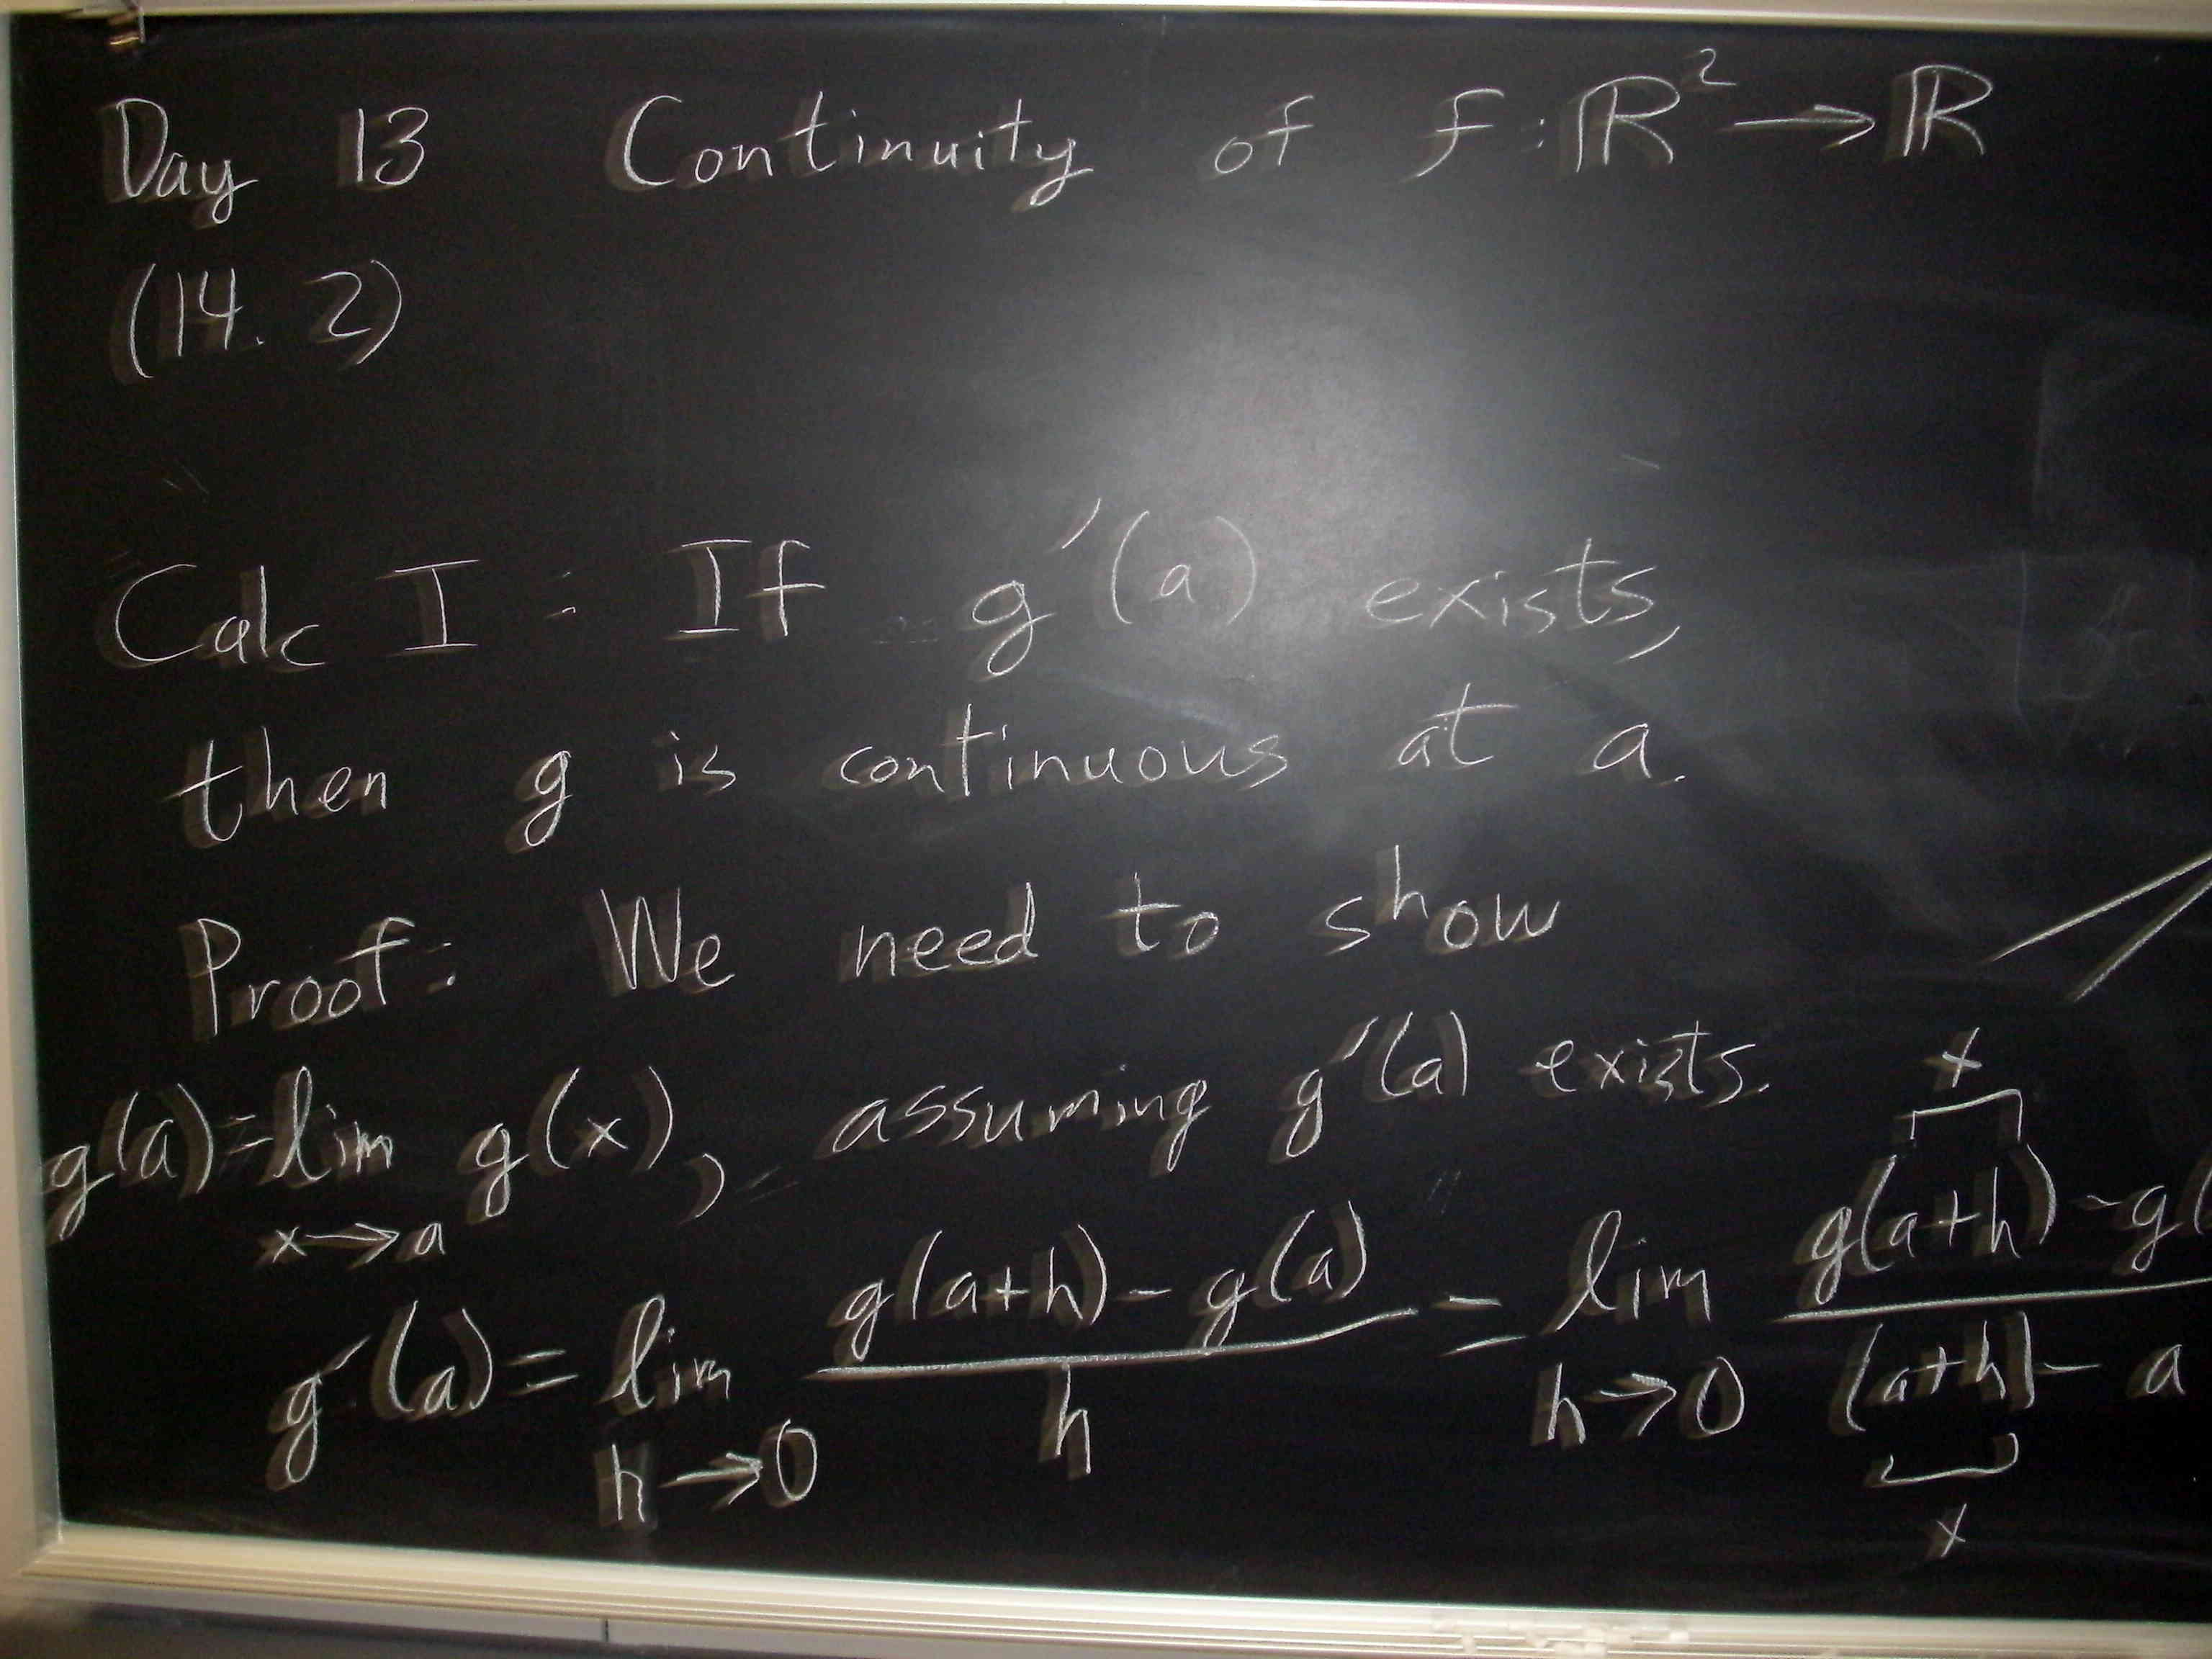 Day 13 Continuity of f: ℝ² → ℝ
(14.2)
Calc I: If g'(a) exists,
then g is continuous at a.
Proof: We need to show
g(a) = lim g(x), assuming g'(a) exists.
x→a
x
g'(a) = lim g(a+h) - g(a) / h = lim g(a+h) - g( / (a+h) - a
h→0 h→0
x